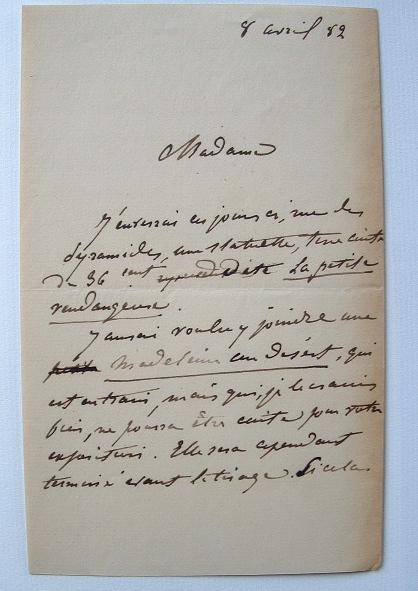 8 avril 82
Madame
J'enverrai ces jours ci, rue des
pyramides, une statuette, terre cuite
de 36 cent dite La petite
vendangeuse.
J'aurai voulu y joindre une
petite Madeleine au désert, qui
est en train, mais qui, je le crains
bien, ne pourra être cuite pour votre
exposition. Elle sera cependant
terminée avant le tirage. Si cela